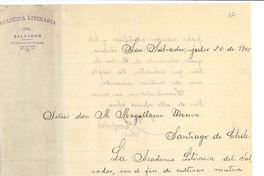 ACADEMIA LITERARIA
DEL
SALVADOR
San Salvador, julio 20 de 1900
Señor don M. Magallanes Moure
Santiago de Chile
La Academia Literaria del Sal-
vador, con el fin de cultivar mutua